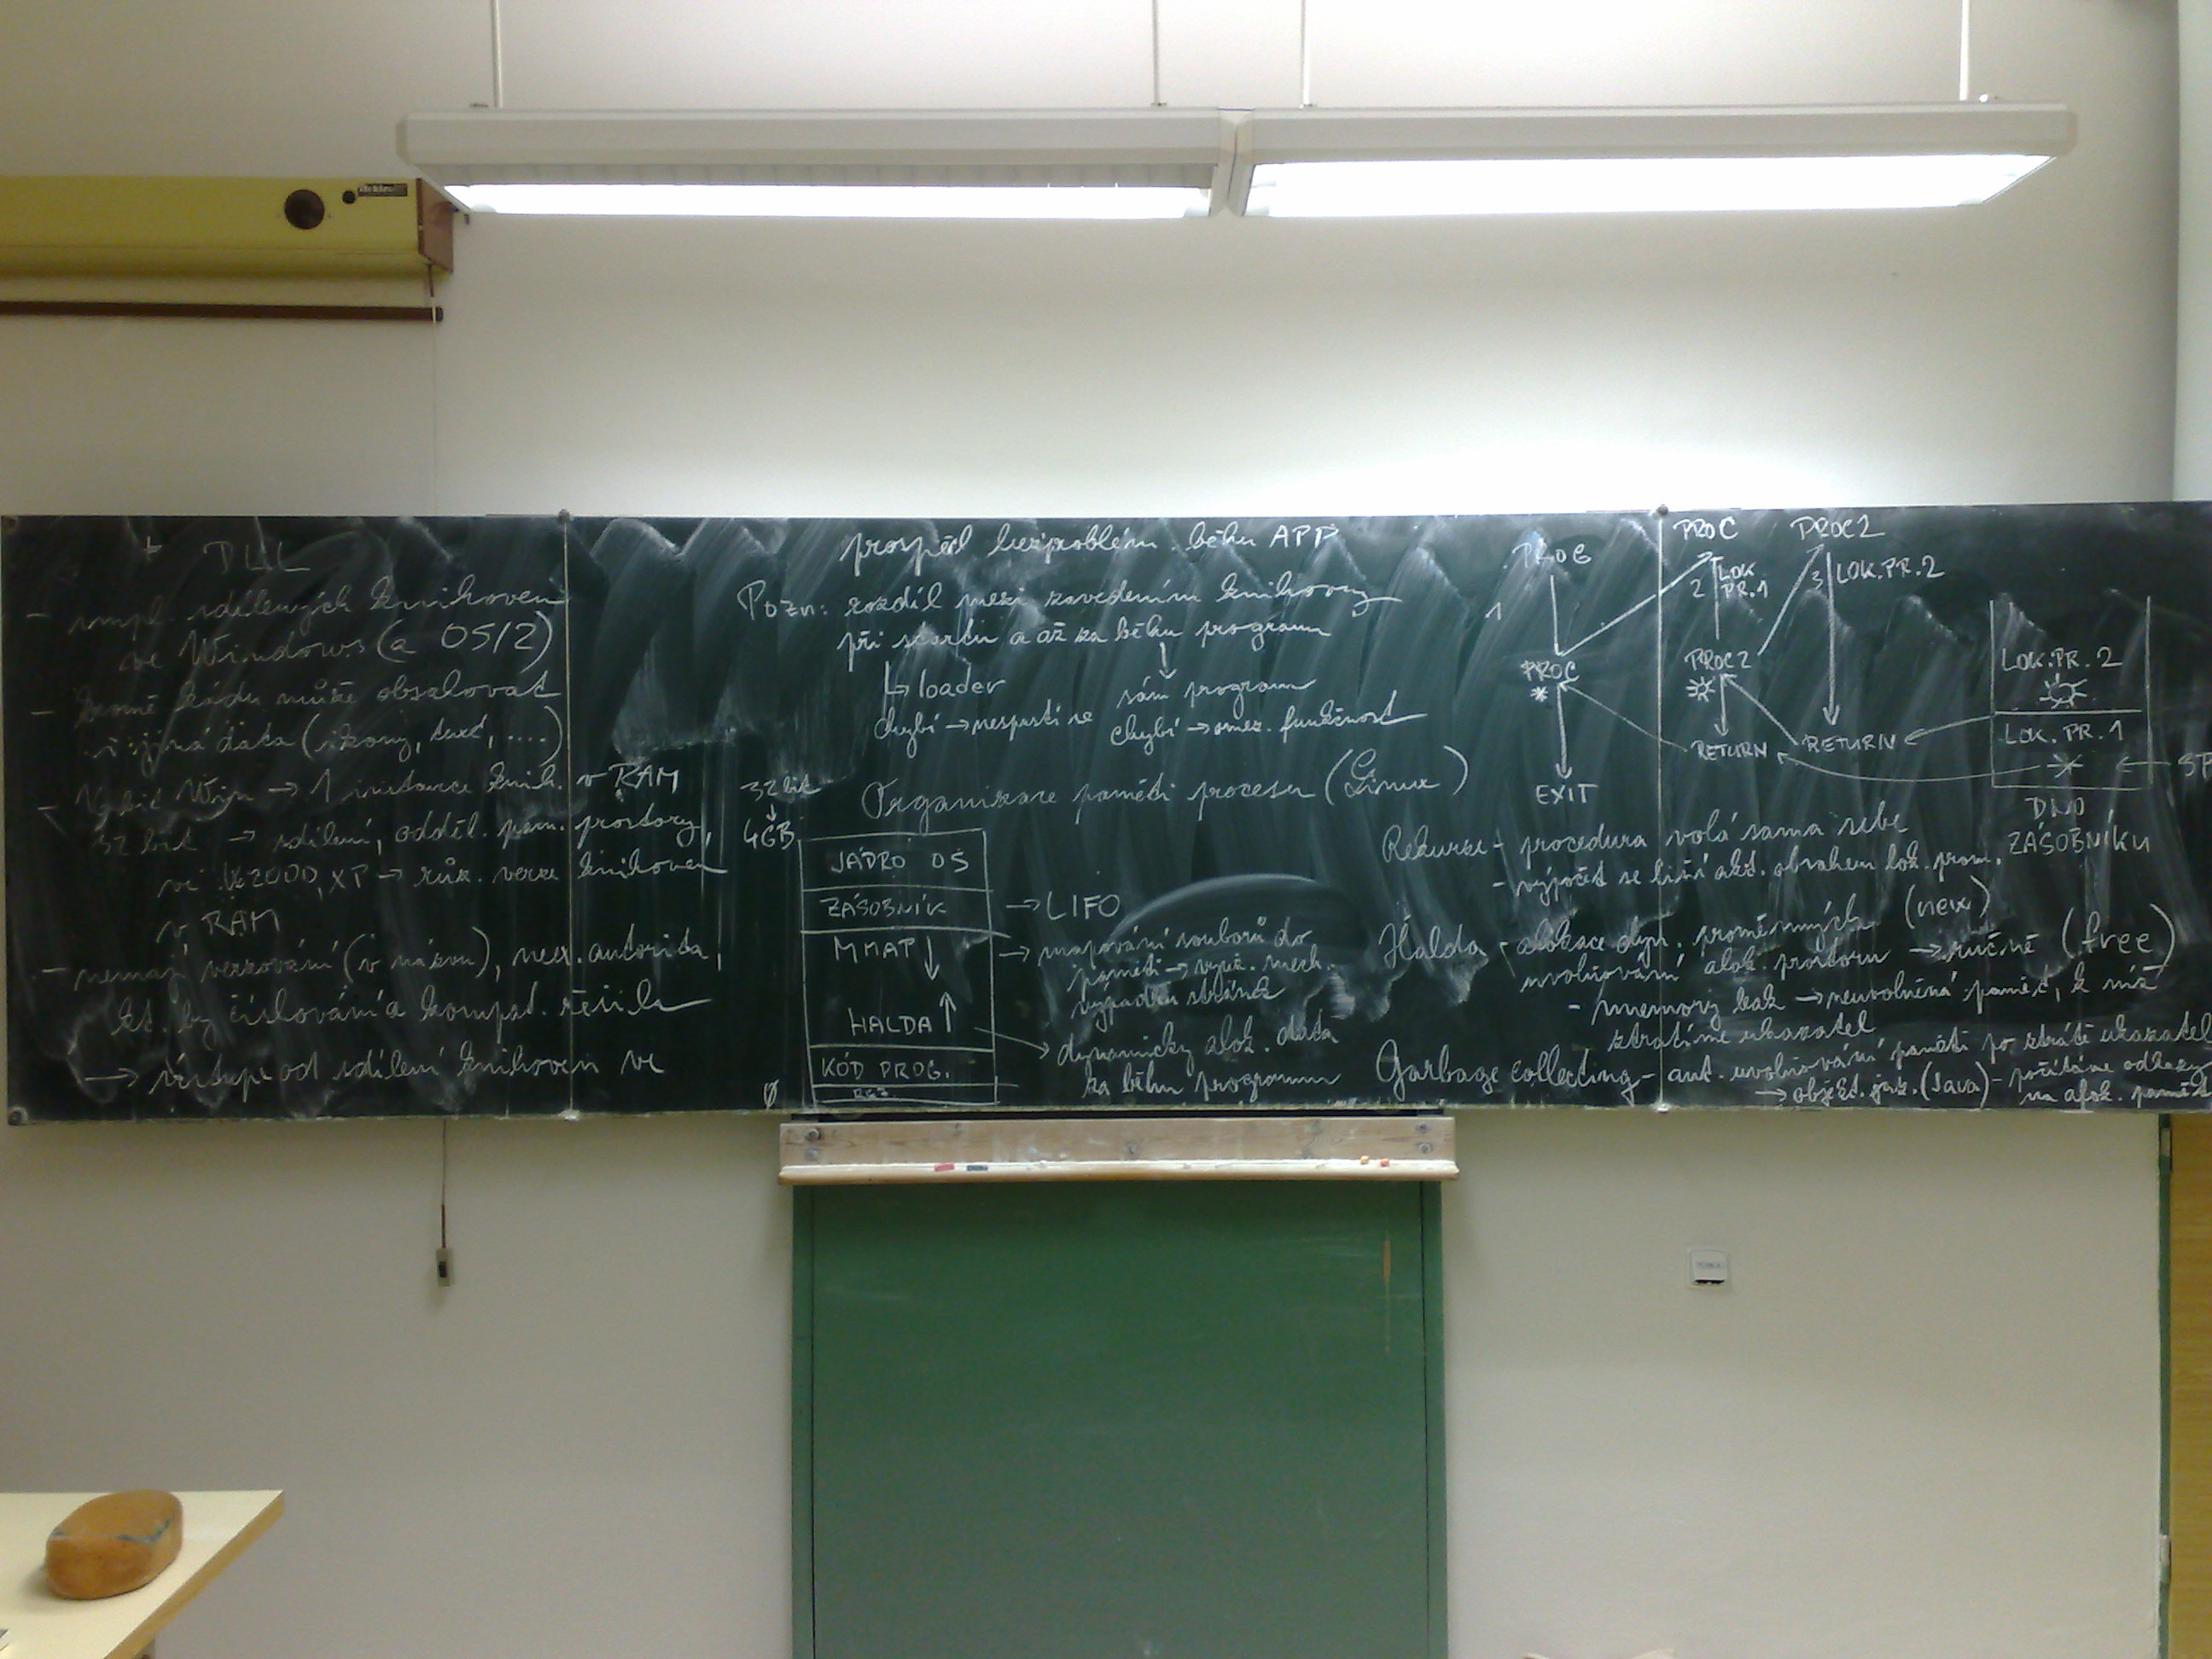 DLL
- impl. sdílených knihoven
ve Windows (a OS/2)
- kromě kódu může obsahovat
i jiná data (ikony, text, ....)
- 16 bit Win → 1 instance knih. v RAM
32 bit → sdílení, odděl. pam. prostory,
ve W2000, XP → růz. verze knihoven
v RAM
- nemají verzování (v názvu), neex. autorita,
kt. by číslování a kompat. řešila
→ ústup od sdílení knihoven ve
prospěch bezproblém. běhu APP
Pozn: rozdíl mezi zavedením knihovny
při startu a až za běhu programu
↳ loader
sám program
chybí → nespustí se
chybí → omez. funkčnost
Organizace paměti procesu (Linux)
32 bit
↓
4GB
JÁDRO OS
ZÁSOBNÍK → LIFO
MMAP ↓ → mapování souborů do
paměti → využ. mech.
výpadku stránek
HALDA ↑ → dynamicky alok. data
za běhu programu
KÓD PROG.
REZ.
Ø
PROG
1
PROC
*
EXIT
PROC
2
LOK
PR.1
PROC2
RETURN
PROC2
3
LOK.PR.2
RETURN
LOK.PR.2
LOK.PR.1
DNO
ZÁSOBNÍKU
Rekurze - procedura volá sama sebe
- výpočet se liší akt. obsahem lok. prom.
Halda - alokace dyn. proměnných (new)
uvolňování alok. prostoru → ručně (free)
- memory leak → neuvolněná paměť, k níž
ztratíme ukazatel
Garbage collecting - aut. uvolňování paměti po ztrátě ukazatel
→ objekt. jaz. (Java) - počítáme odkazy
na alok. paměť